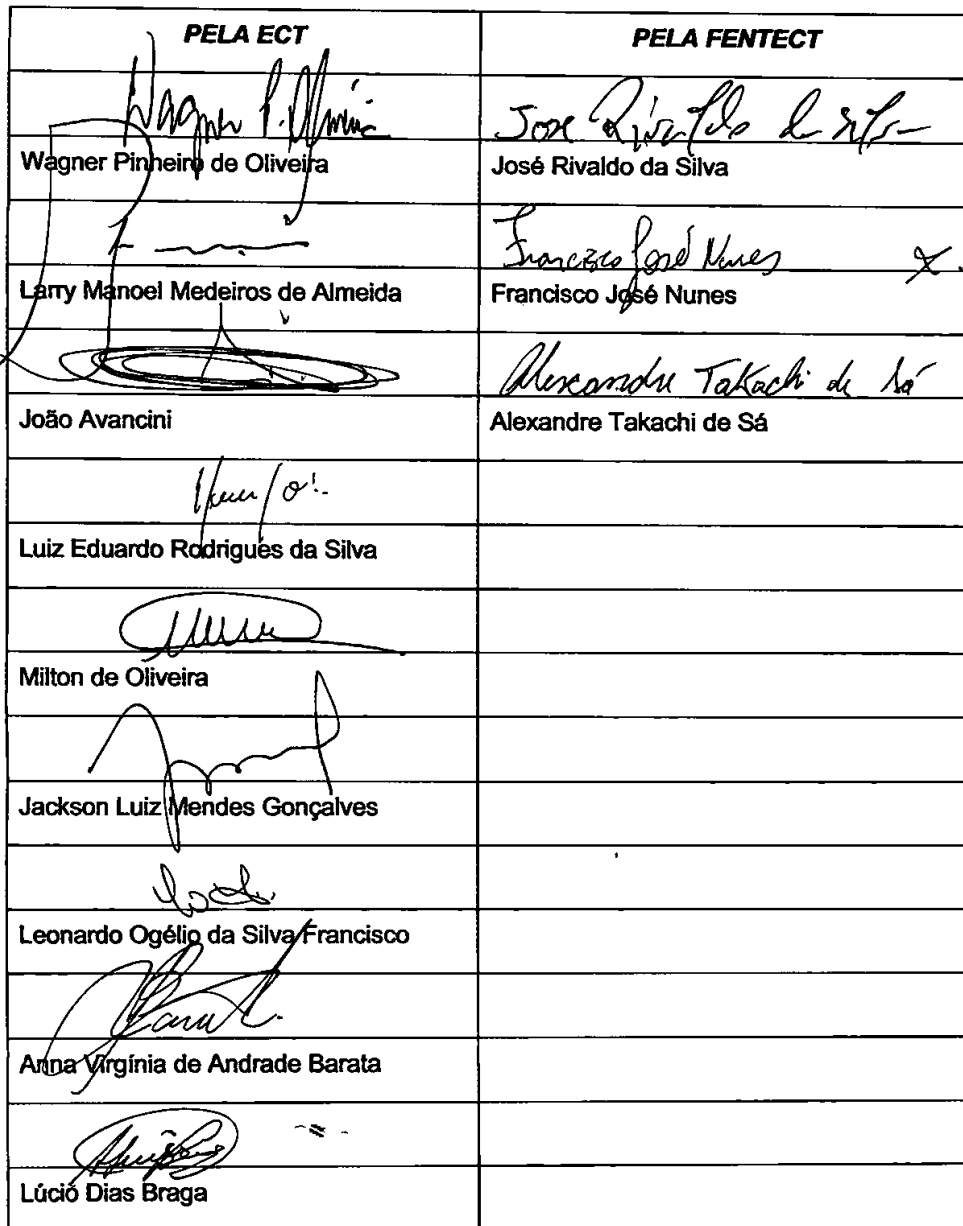 PELA ECT PELA FENTECT
Wagner P. Oliveira Jose Rivaldo da Silva
Wagner Pinheiro de Oliveira José Rivaldo da Silva
Francisco José Nunes
Larry Manoel Medeiros de Almeida Francisco José Nunes
Alexandre Takachi de Sá
João Avancini Alexandre Takachi de Sá
Luiz Eduardo Rodrigues da Silva
Milton de Oliveira
Jackson Luiz Mendes Gonçalves
Leonardo Ogélio da Silva Francisco
Anna Virgínia de Andrade Barata
Lúcio Dias Braga